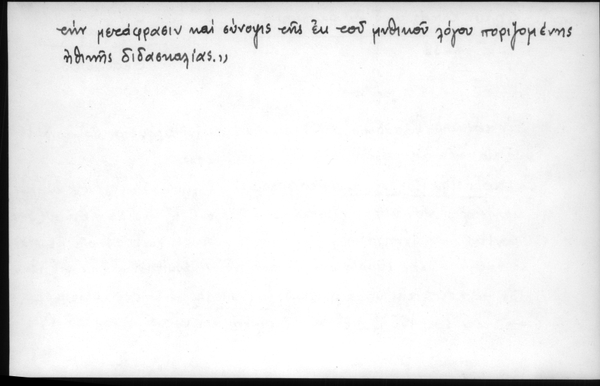 τὴν μετάφρασιν καὶ σύνοψις τῆς ἐκ τοῦ μυθικοῦ λόγου ποριζομένης
ἠθικῆς διδασκαλίας.,,